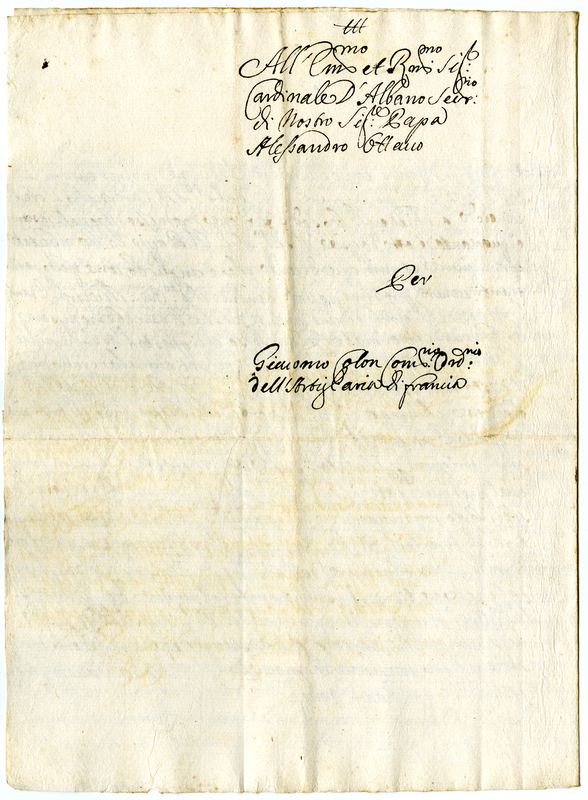 All' Em.mo et R.mo Sig.r
Cardinale D'Albano Secr.rio
di Nostro Sig.re Papa
Alessandro Ottavo
Per
Giacomo Colon Com.rio Ord.rio
dell'Artiglaria di francia